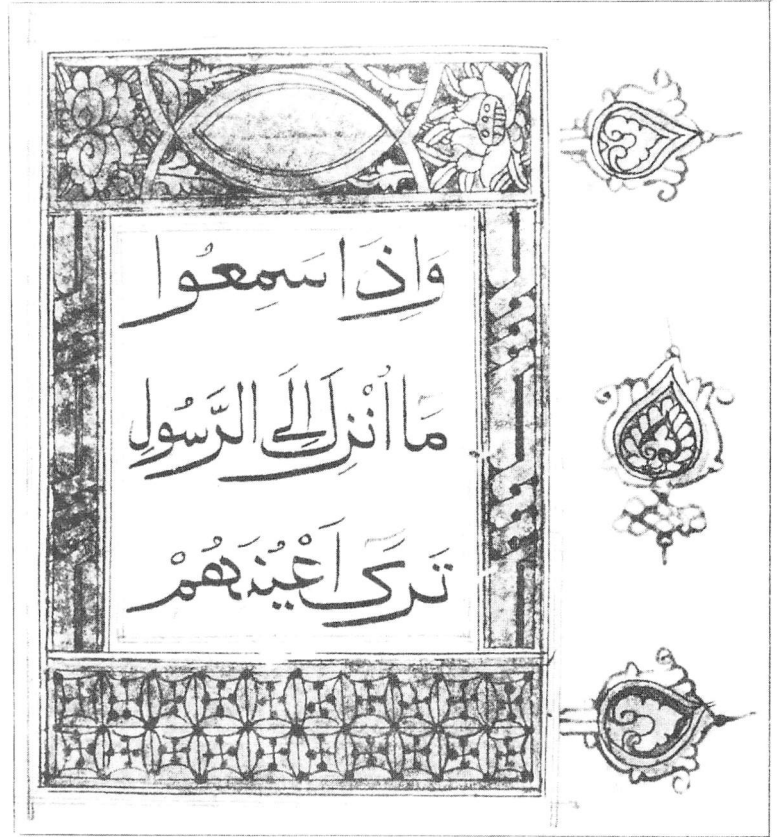 وَاِذَا سَمِعُوا
مَا اُنْزِلَ اِلَى الرَّسُولِ
تَرَى اَعْيُنَهُمْ